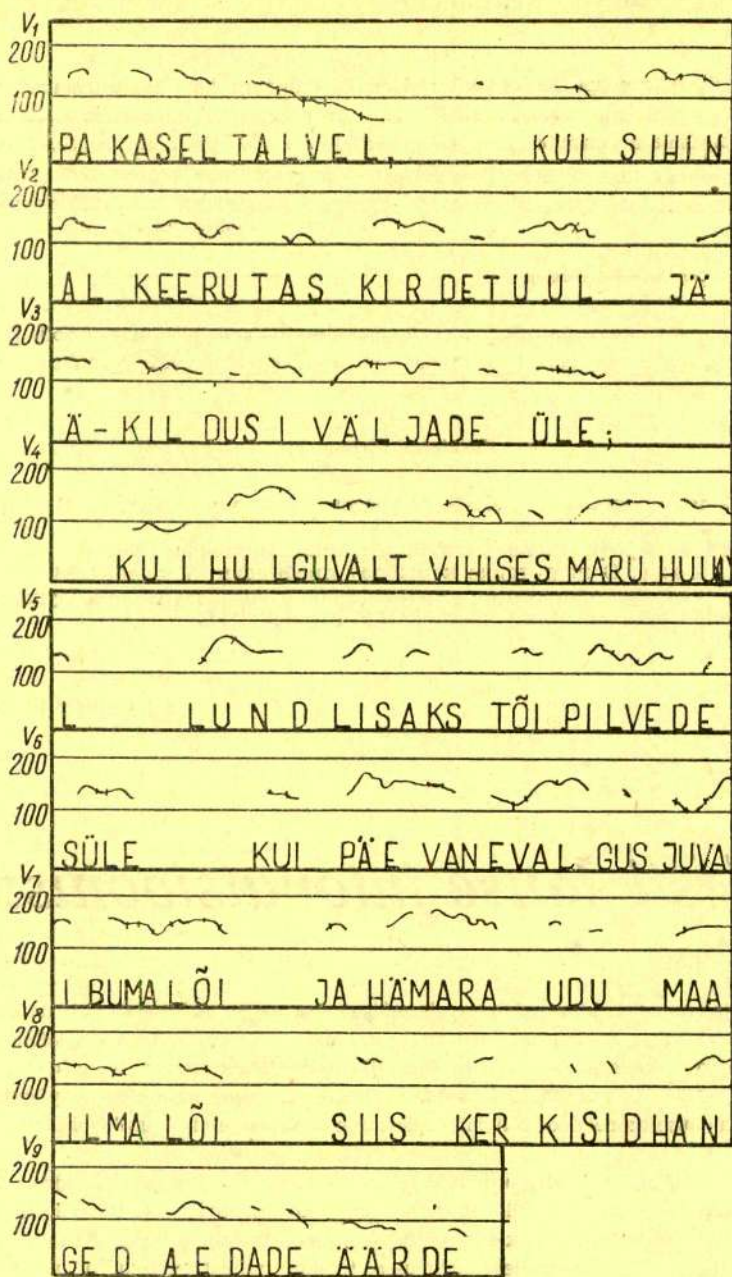 V1
200
100
PAKASEL TALVEL, KUI SIHIN
V2
200
100
AL KEERUTAS KIRDETUUL JÄ
V3
200
100
Ä-KILDUSI VÄLJADE ÜLE;
V4
200
100
KUI HULGUVALT VIHISES MARU HUU
V5
200
100
L LUND LISAKS TÕI PILVEDE
V6
200
100
SÜLE KUI PÄEVANE VALGUS JUVA
V7
200
100
IBUMA LÕI JA HÄMARA UDU MAA
V8
200
100
ILMA LÕI SIIS KERKISID HAN
V9
200
100
GED AEDADE ÄÄRDE